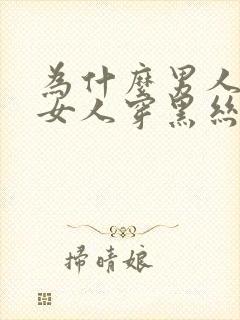 為什麼男人
女人穿黑絲
掃晴娘